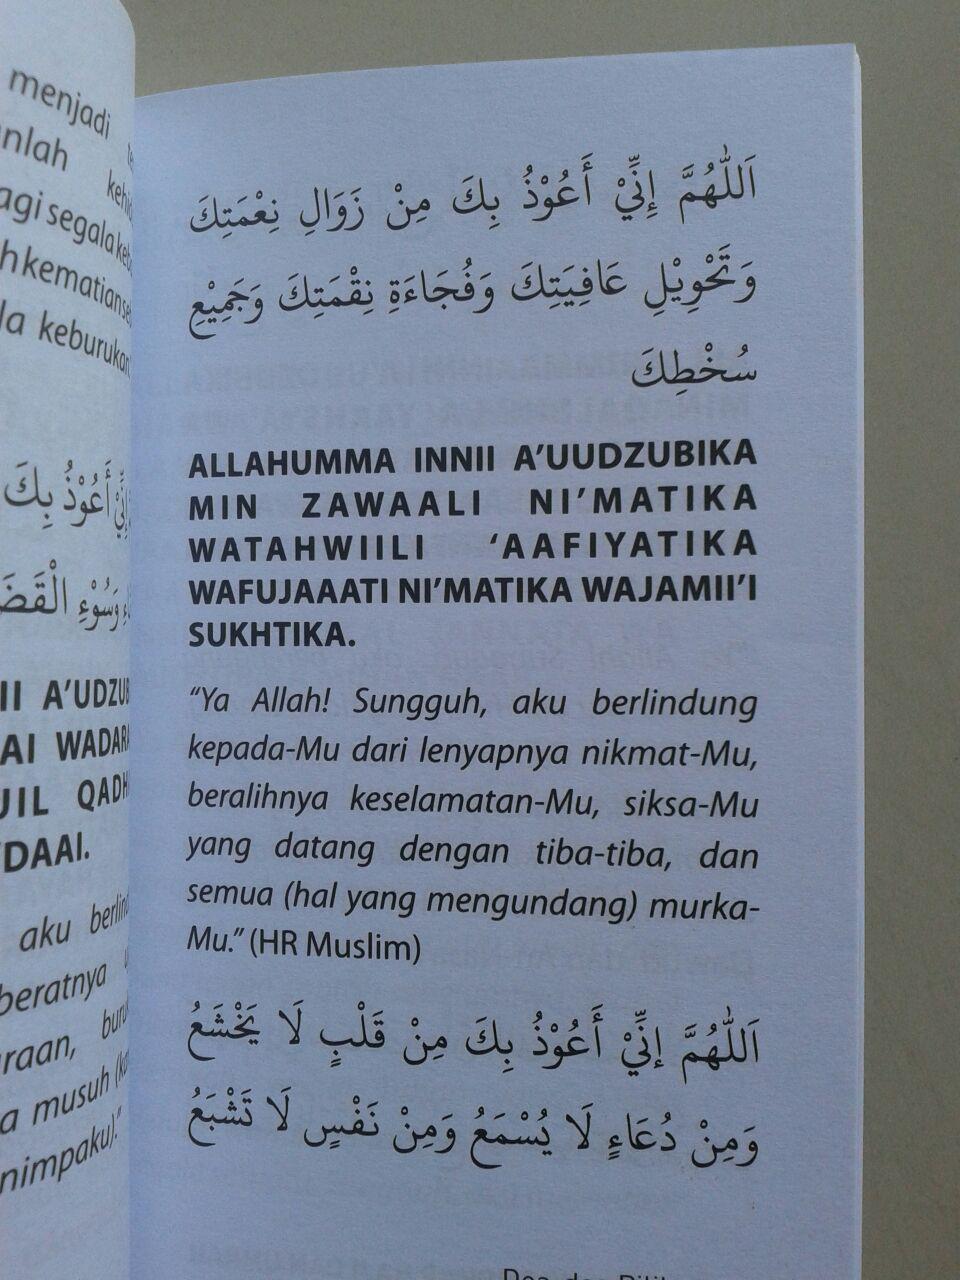 menjadi
anlah
agi segala
la keburukan
إِنِّيْ أَعُوْذُ بِكَ
وَسُوْءِ الْقَضَ
II A'UDZUB
AI WADARA
UIL QADH
'DAAI.
aku berlind
beratnya
raan, buru
a musuh
nimpaku)."
اَللّٰهُمَّ إِنِّيْ أَعُوْذُ بِكَ مِنْ زَوَالِ نِعْمَتِكَ
وَتَحْوِيْلِ عَافِيَتِكَ وَفُجَاءَةِ نِقْمَتِكَ وَجَمِيْعِ
سُخْطِكَ
ALLAHUMMA INNII A'UUDZUBIKA
MIN ZAWAALI NI'MATIKA
WATAHWIILI 'AAFIYATIKA
WAFUJAAATI NI'MATIKA WAJAMII'I
SUKHTIKA.
"Ya Allah! Sungguh, aku berlindung
kepada-Mu dari lenyapnya nikmat-Mu,
beralihnya keselamatan-Mu, siksa-Mu
yang datang dengan tiba-tiba, dan
semua (hal yang mengundang) murka-
Mu." (HR Muslim)
اَللّٰهُمَّ إِنِّيْ أَعُوْذُ بِكَ مِنْ قَلْبٍ لَا يَخْشَعُ
وَمِنْ دُعَاءٍ لَا يُسْمَعُ وَمِنْ نَفْسٍ لَا تَشْبَعُ